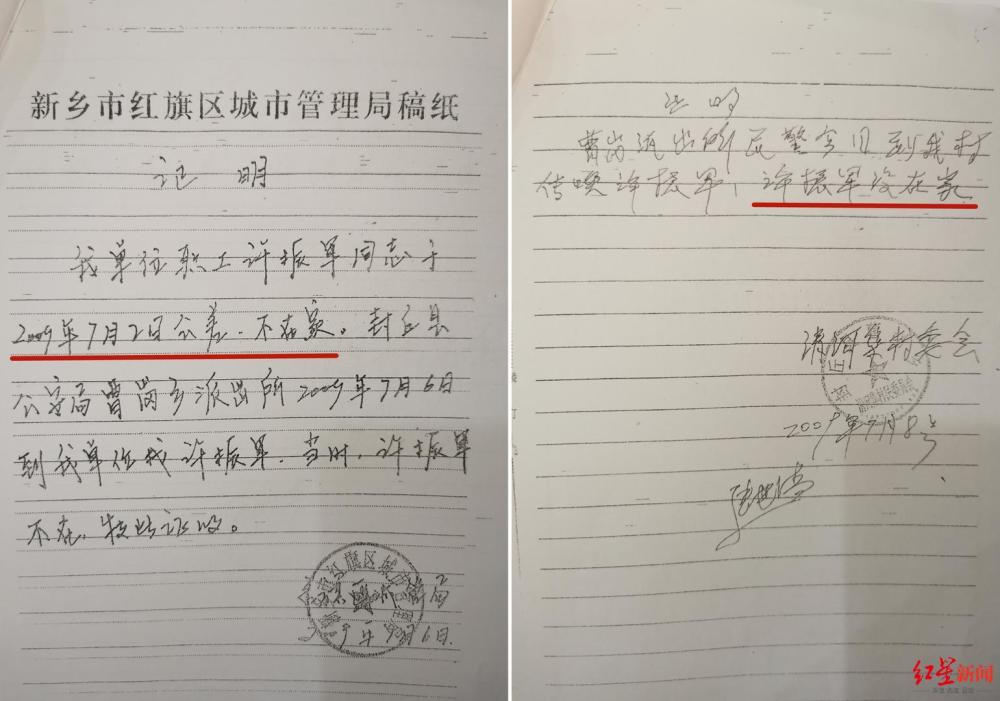 新乡市红旗区城市管理局稿纸
证明
我单位职工许振军同志于
2009年7月2日公差.不在家。封丘县
公安局曹岗乡派出所2009年7月6日
到我单位找许振军.当时,许振军
不在.特此证明。
红旗区城市
7月6日.
证明
曹岗派出所民警今日到我村
传唤许振军,许振军没在家
清河集村委会
2009年7月8号
红星新闻